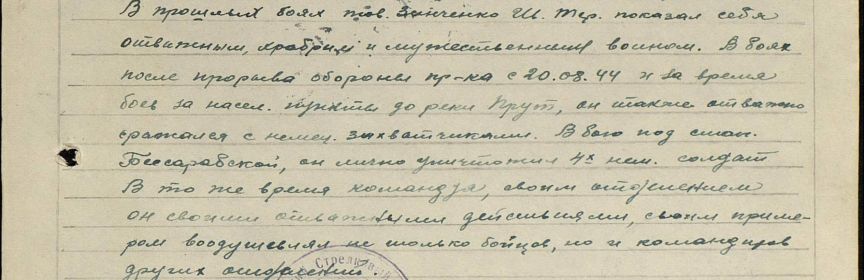 В прошлых боях тов. Зинченко Ив. Тер. показал себя
отважным, храбрым и мужественным воином. В боях
после прорыва обороны пр-ка с 20.08.44 и за время
боев за насел. пункты до реки Прут, он также отважно
сражался с немец. захватчиками. В бою под стан.
Бессарабской, он лично уничтожил 4х нем. солдат
В то же время командуя, своим отделением
он своими отважными действиями, своим приме-
ром воодушевлял не только бойцов, но и командиров
других отделений.
Стрелков